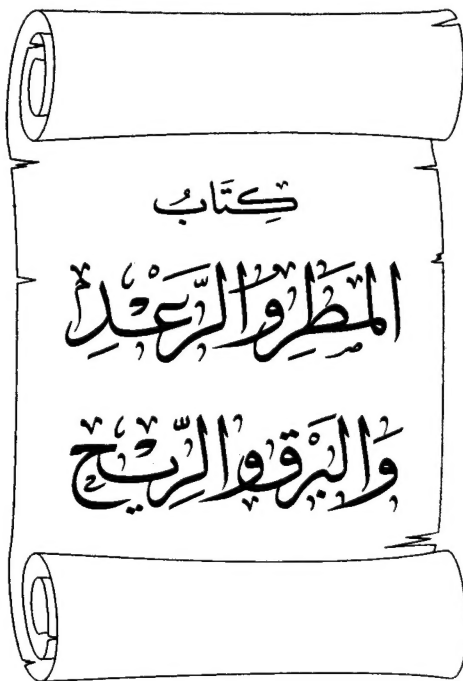 كِتَابُ
المَطَرِ وَالرَّعْدِ
وَالبَرْقِ وَالرِّيْحِ